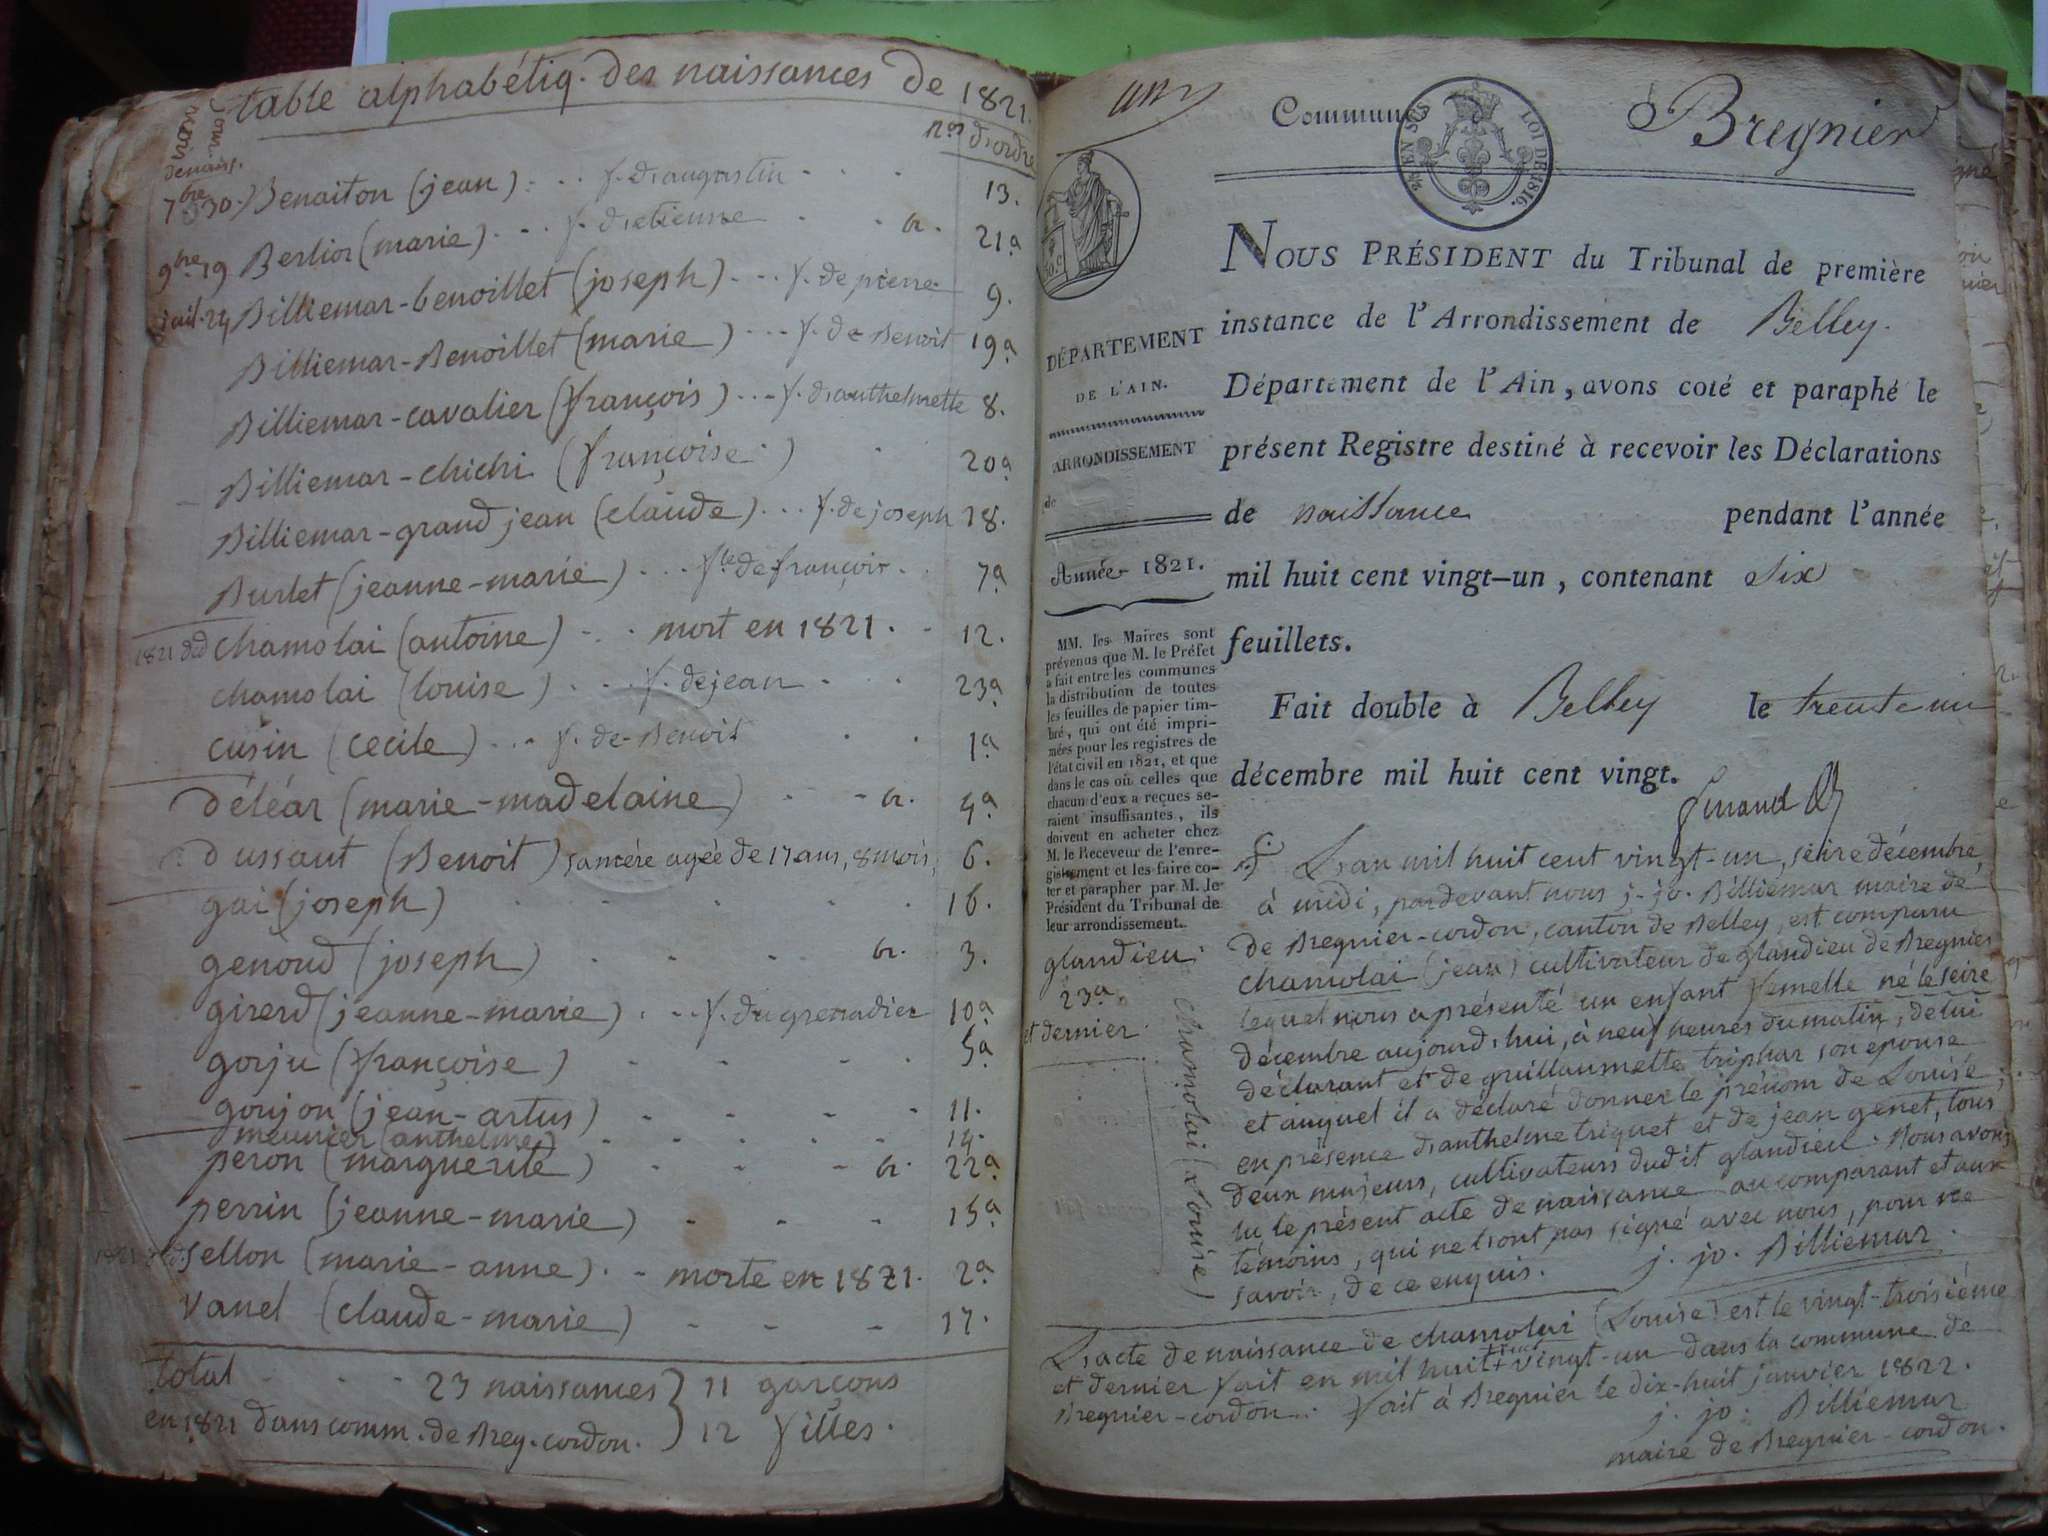 table alphabétiq. des naissances de 1821.
nos d'ordre
jour.
mois
de naiss.
7bre 30. Benaiton (jean) . . . f. d'augustin . . . 13.
9bre 19 Berlioz (marie) . . . f. d'etienne . . br. 21a
juil. 24 Billiemaz-benoillet (joseph) . . . f. de pierre 9.
Billiemaz-Benoillet (marie) . . . f. de Benoit 19a
Billiemaz-cavalier (françois) . . . f. d'anthelmette 8.
Billiemaz-chichi (françoise) . 20a
Billiemaz-grand jean (claude) . . . f. de joseph 18.
Burlet (jeanne-marie) . . . flle de françois . . 7a
1821 dcd chamolai (antoine) . . . mort en 1821 . . 12.
chamolai (louise) . . . f. de jean . . 23a
cusin (cecile) . . . f. de Benoit . . 1a
déléar (marie-madelaine) . . br. 4a
dussaut (Benoit) sa mère agée de 17 ans, 8 mois, 6.
gai (joseph) . . . . . 16.
genoud (joseph) . . . br. 3.
girerd (jeanne-marie) . . . f. du grenadier 10a
gorju (françoise) . . . . 5a
goujon (jean-artus) . . . . 11.
meunier (anthelme) . . . . . 14.
peron (marguerite) . . . br. 22a
perrin (jeanne-marie) . . . 15a
1821 dcd. sellon (marie-anne) . . morte en 1821. 2a
vanel (claude-marie) . . . 17.
total . . . 23 naissances } 11 garçons
en 1821 dans comm. de Breg. cordon. } 12 filles.
Commune d Bregnier
26 EN SUS LOI DE 1816.
DÉPARTEMENT
DE L'AIN.
ARRONDISSEMENT
de
Année 1821.
MM. les Maires sont
prévenus que M. le Préfet
a fait entre les communes
la distribution de toutes
les feuilles de papier tim-
bré, qui ont été impri-
mées pour les registres de
l'état civil en 1821, et que
dans le cas où celles que
chacun d'eux a reçues se-
raient insuffisantes, ils
doivent en acheter chez
M. le Receveur de l'enre-
gistrement et les faire co-
ter et parapher par M. le
Président du Tribunal de
leur arrondissement.
NOUS PRÉSIDENT du Tribunal de première
instance de l'Arrondissement de Belley.
Département de l'Ain, avons coté et paraphé le
présent Registre destiné à recevoir les Déclarations
de naissance pendant l'année
mil huit cent vingt-un, contenant Six
feuillets.
Fait double à Belley le trente un
décembre mil huit cent vingt.
glandieu.
23a
et dernier.
chamolai (Louise)
L'an mil huit cent vingt-un, seize décembre,
à midi, pardevant nous j. jo. Billiemaz maire de
de Bregnier-cordon, canton de Belley, est comparu
chamolai (jean) cultivateur de glandieu de Bregnier
lequel nous a présenté un enfant femelle né le seize
décembre aujourd'hui, à neuf heures du matin, de lui
déclarant et de guillaumette triphar son epouse
et auquel il a déclaré donner le prénom de Louise;
en présence d'anthelme triquet et de jean genet, tous
deux majeurs, cultivateurs dudit glandieu. Nous avons
lu le présent acte de naissance au comparant et aux
témoins, qui ne l'ont pas signé avec nous, pour ne
savoir, de ce enquis. j. jo. Billiemaz.
L'acte de naissance de chamolai (Louise) est le vingt-troisième
et dernier fait en mil huit cent vingt-un dans la commune de
Bregnier-cordon. fait à Bregnier le dix-huit janvier 1822.
j. jo. Billiemaz
maire de Bregnier-cordon.